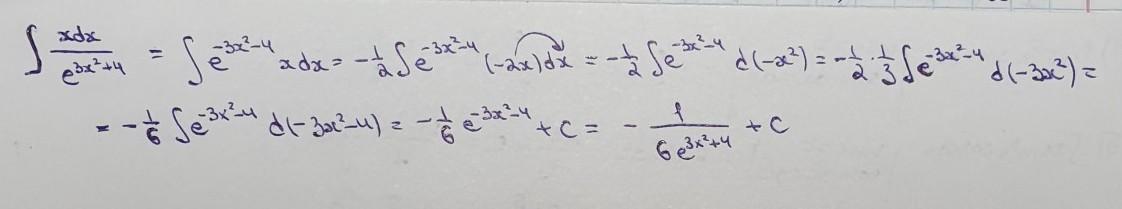 ∫ xdx/e^(3x²+4) = ∫ e^(-3x²-4) xdx = -1/2 ∫ e^(-3x²-4) (-2x)dx = -1/2 ∫ e^(-3x²-4) d(-x²) = -1/2 · 1/3 ∫ e^(-3x²-4) d(-3x²) =
= -1/6 ∫ e^(-3x²-4) d(-3x²-4) = -1/6 e^(-3x²-4) + C = - 1/(6e^(3x²+4)) + C